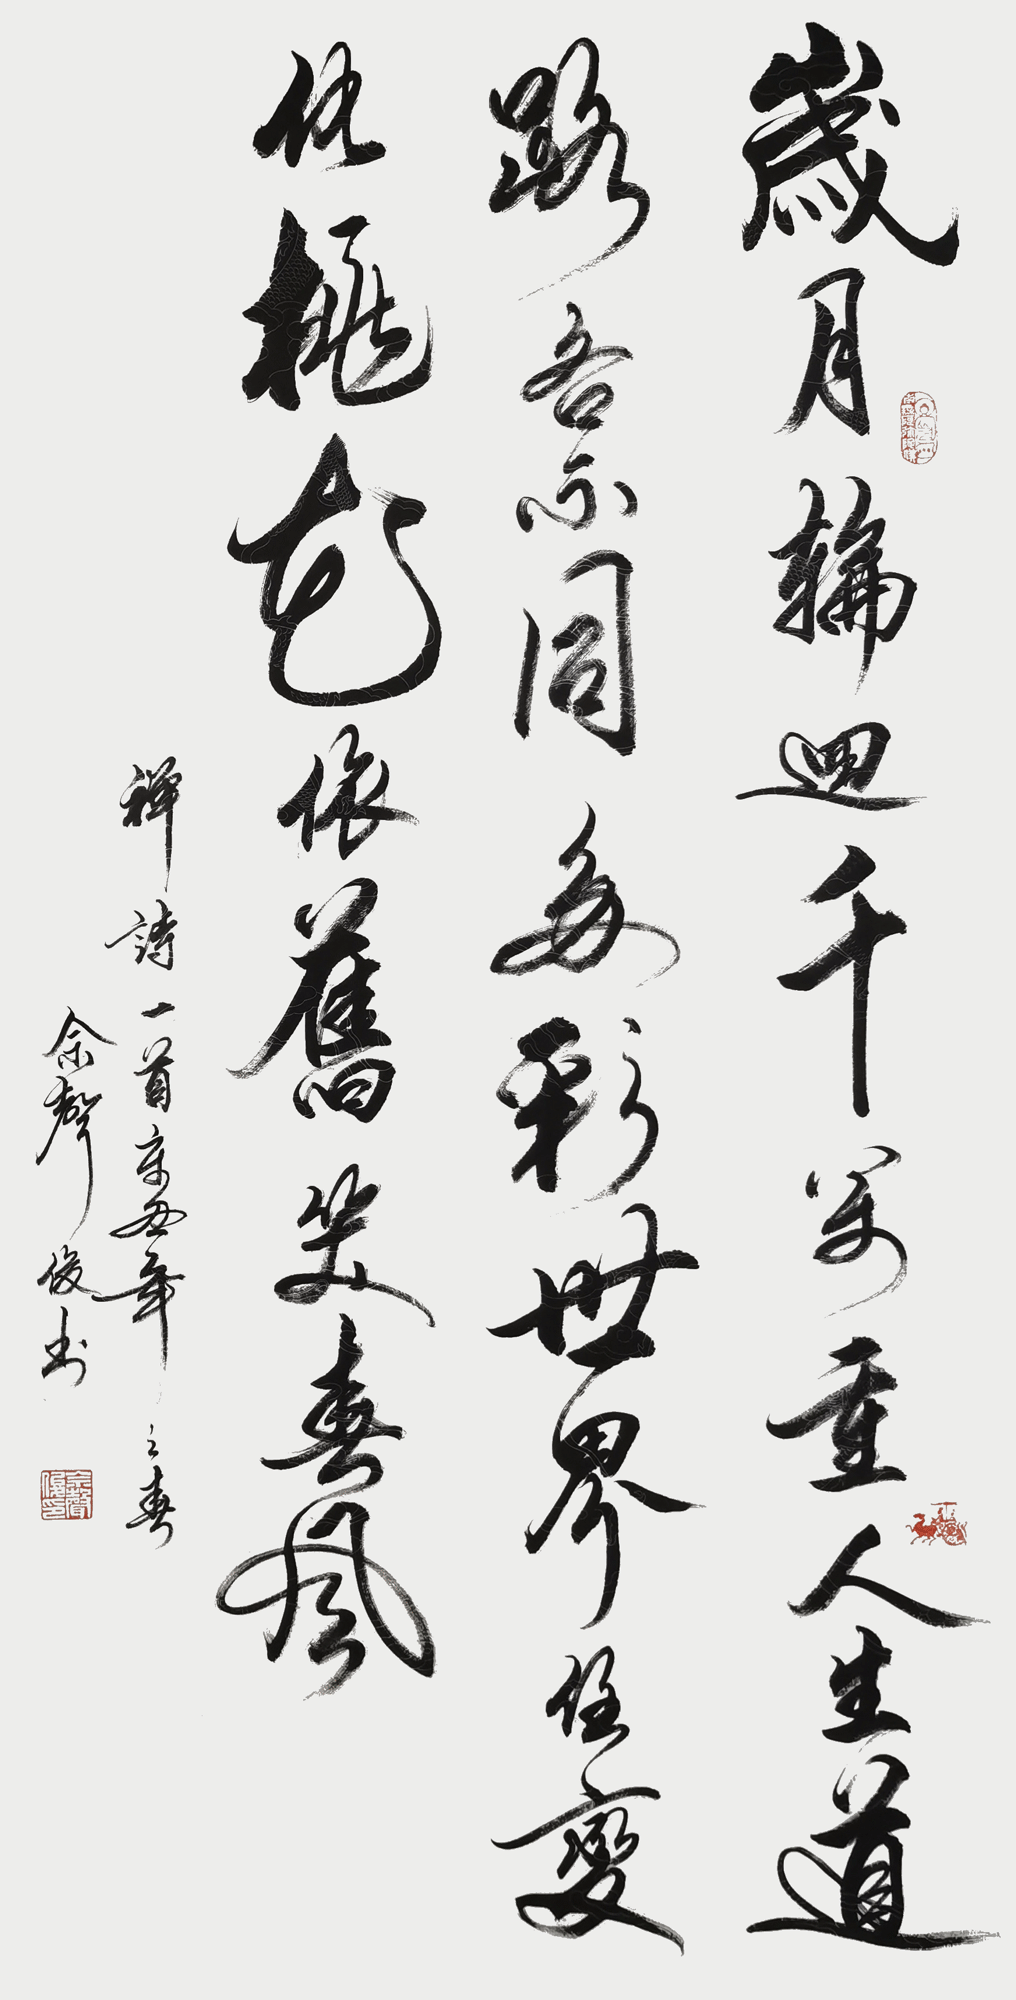 歲月輪迴千万重人生道
路各不同多彩世界任變
化桃花依舊笑春風
禪詩一首辛丑年之春
余聲俊书
余聲俊印